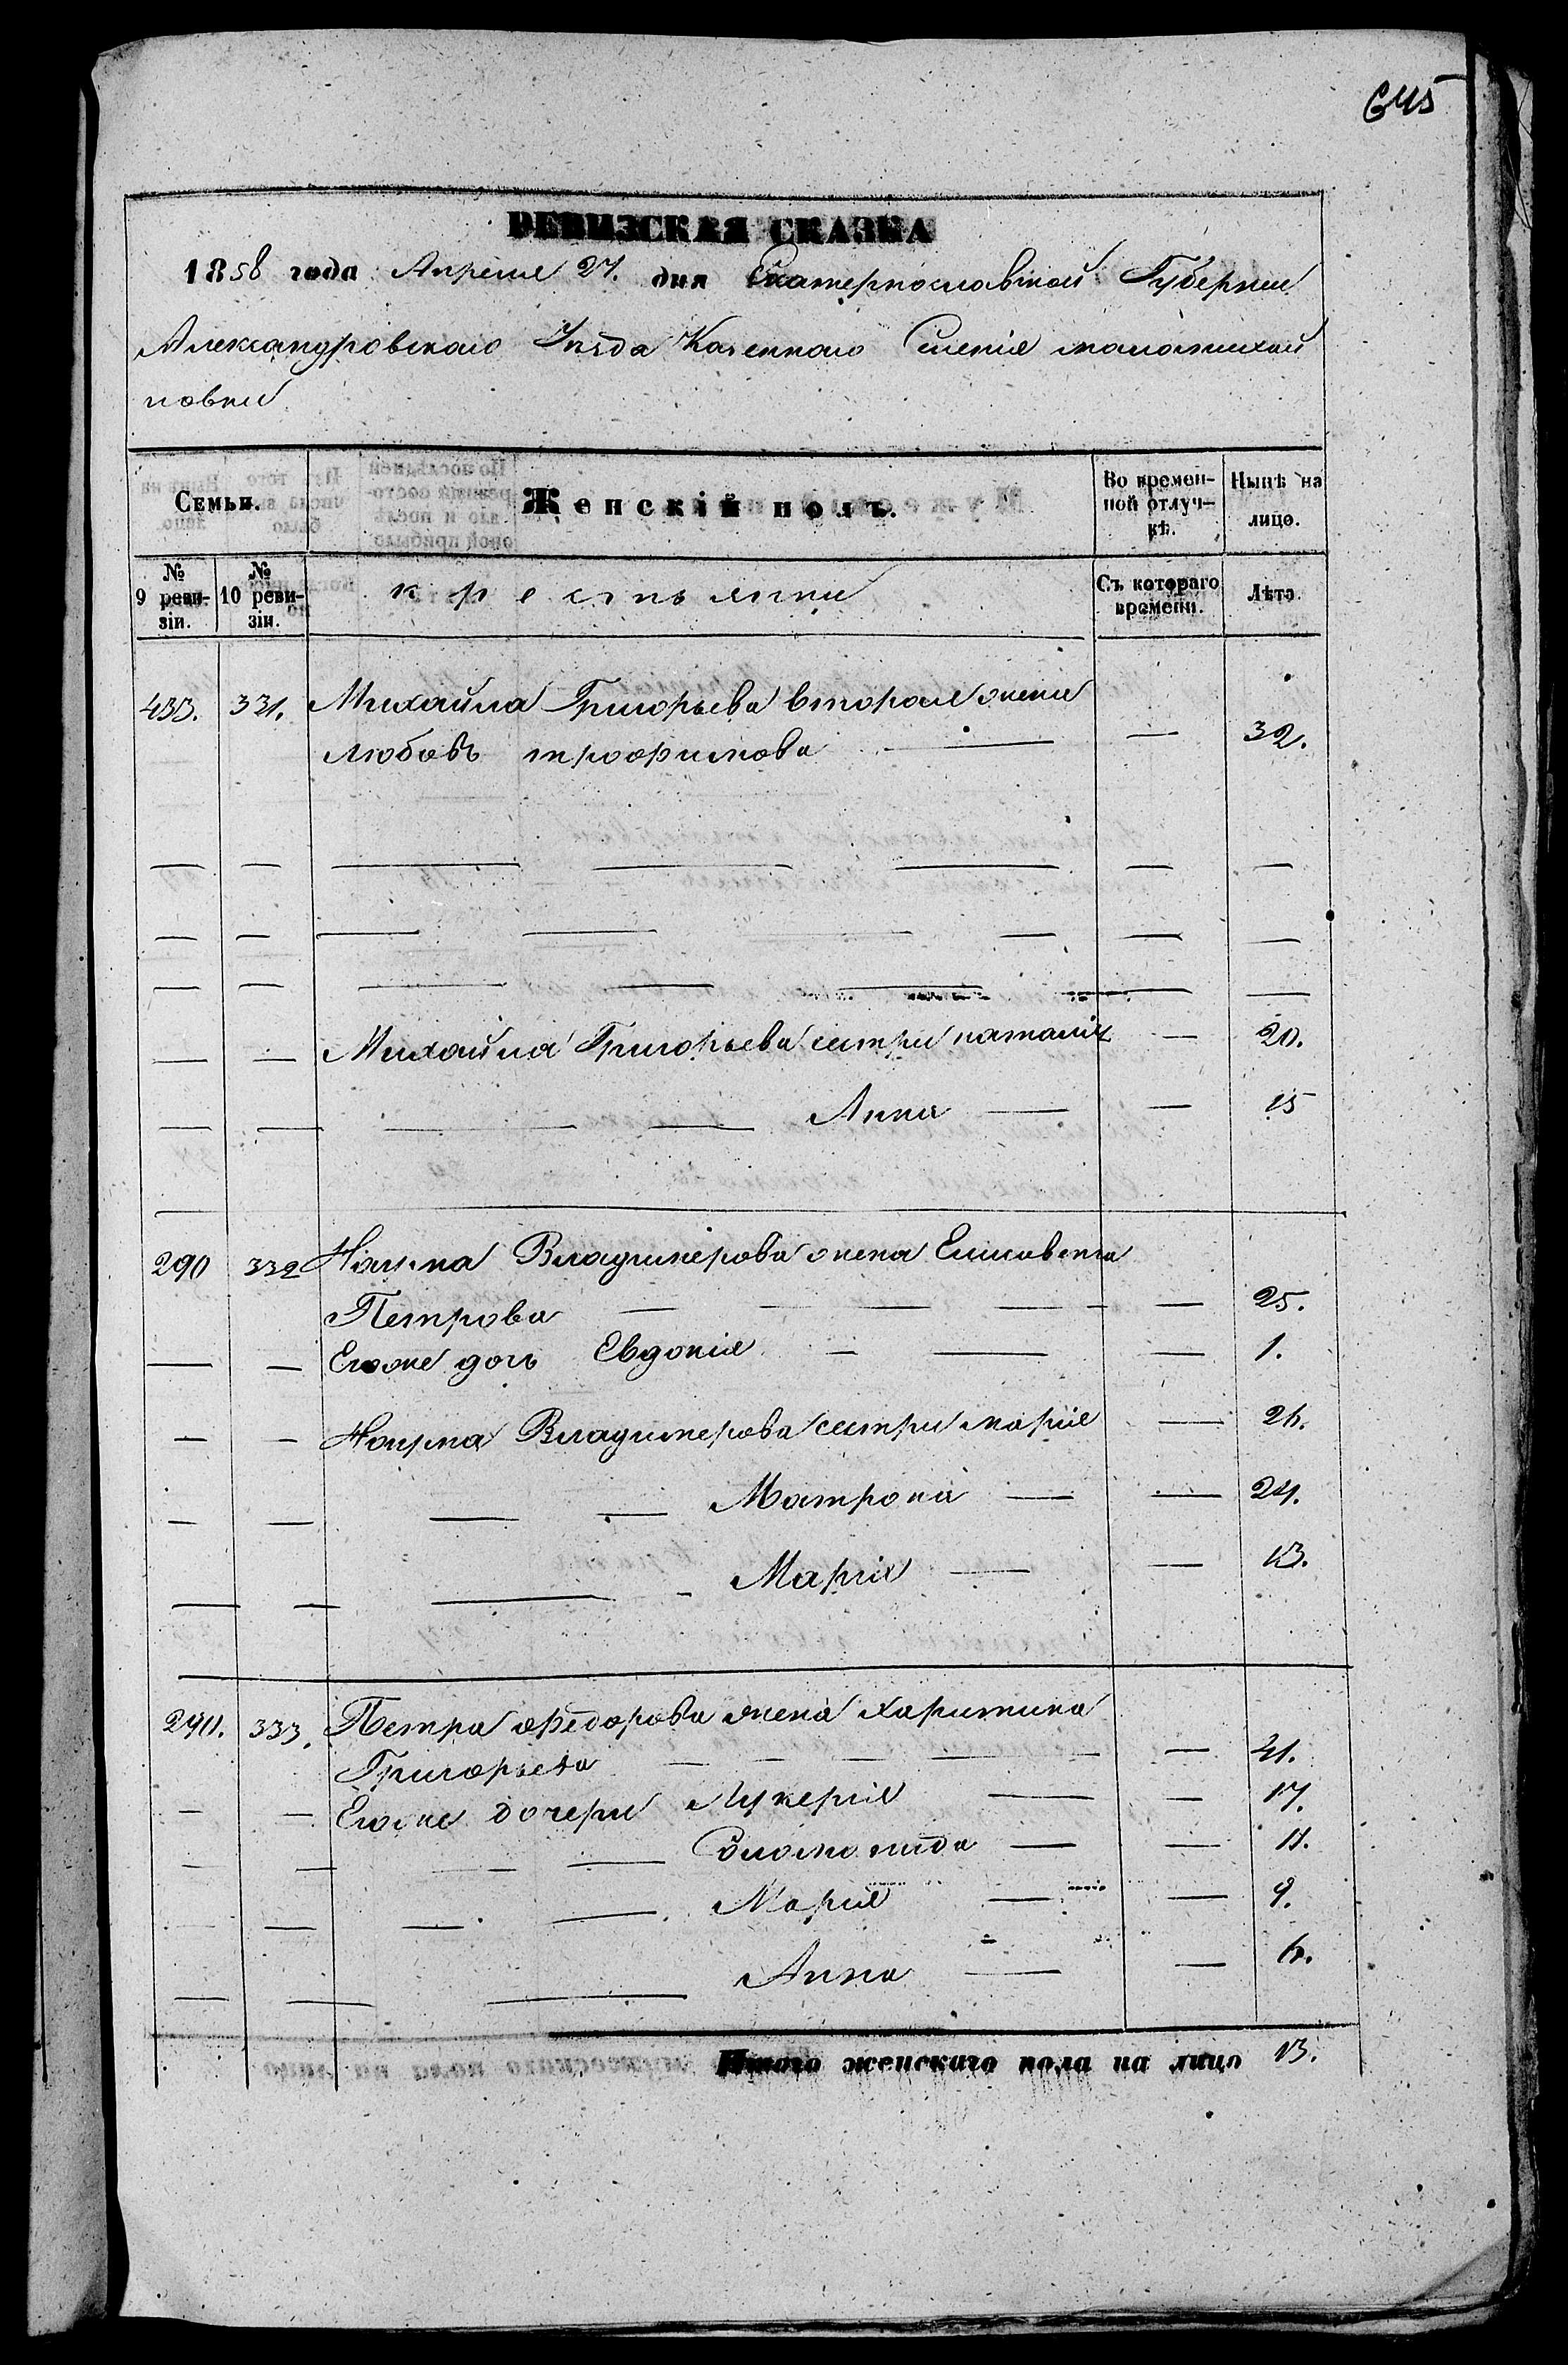 645
РЕВИЗСКАЯ СКАЗКА
1858 года Апреля 27. дня Екатеринославской Губернии
Александровскаго Уезда Казеннаго Селенія маломихай
ловки
Семьи.
Женскій полъ.
Во времен-
ной отлуч-
кѣ.
Нынѣ на
лицо.
№
9 реви-
зіи.
№
10 реви-
зіи.
крестьянки
Съ котораго
времени.
Лѣта.
433. 331. Михайла Григорьева вторая жена
Любовь трофимова — — 32.
— — Михайла Григорьева сестры наталія — 20.
— — — — Анна — — 15
290 332 Наума Владимерова жена Елисавета
Петрова — — — — — — 25.
— — Егоже дочь Евдокія — — — 1.
— — Наума Владимерова сестры марія — 26.
— — — — Матрона — — 24.
— — — — Марія — — 13.
290. 333. Петра федорова жена харитина
Григорьева — — — — — — 41.
— — Егоже дочери Лукерія — — 17.
— — — — Соломонида — — 11.
— — — — Марія — — 9.
— — — Анна — — 6.
Итого женскаго пола на лицо 13.